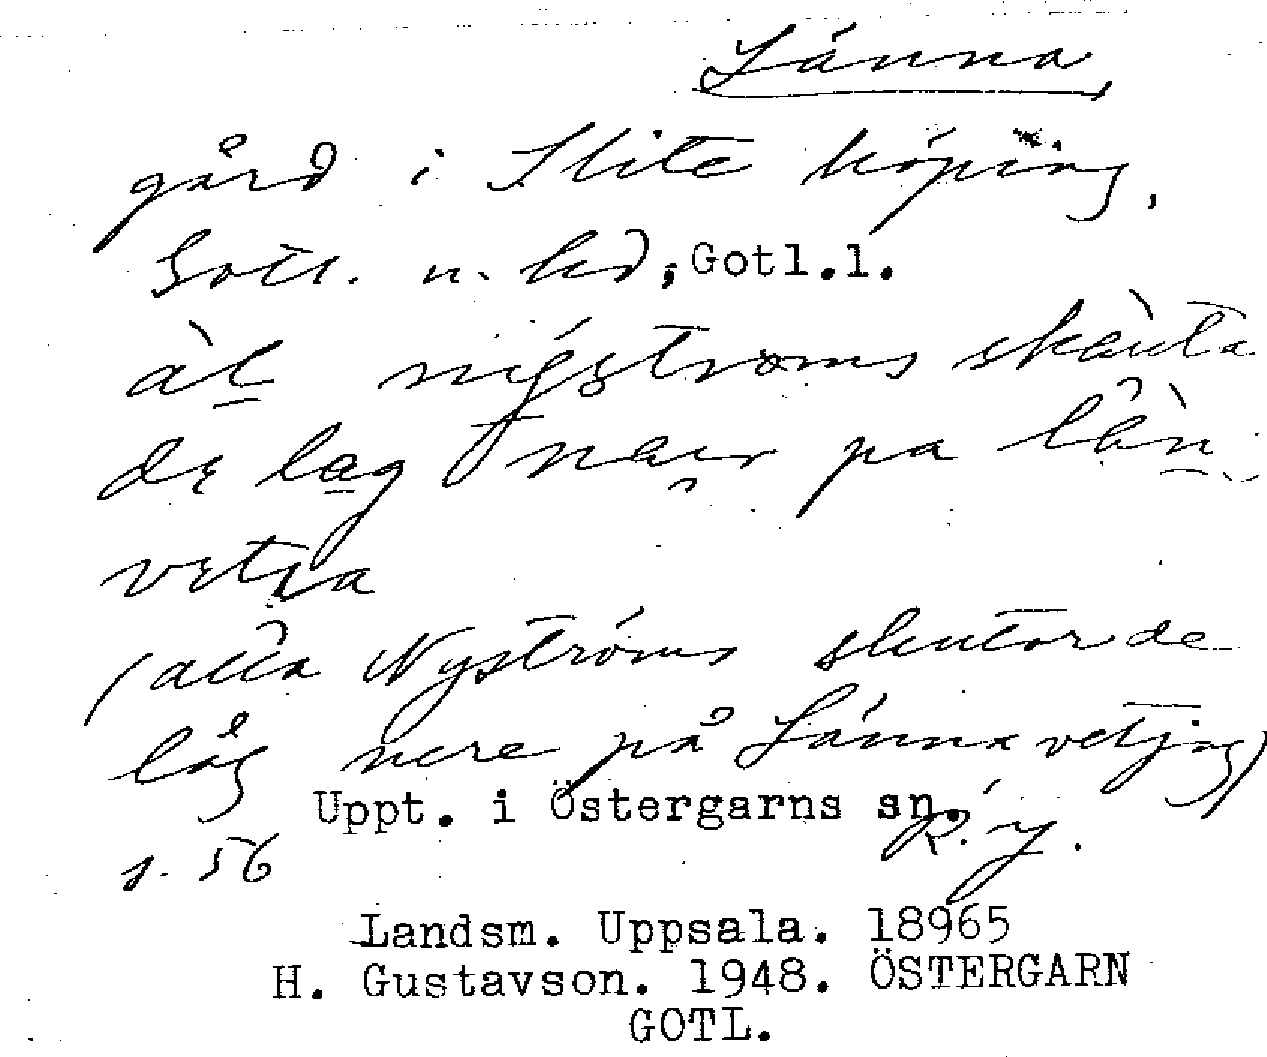 Länna
gård i Slite köping,
Gotl. n. hd, Gotl.l.
àl nýstroms skàuta
de lag naur pa làn
vetıa
(alla Nyströms skutor de
låg nere på Länna vetjng)
Uppt. i Östergarns sn.
s. 56 R. J.
Landsm. Uppsala. 18965
H. Gustavson. 1948. ÖSTERGARN
GOTL.